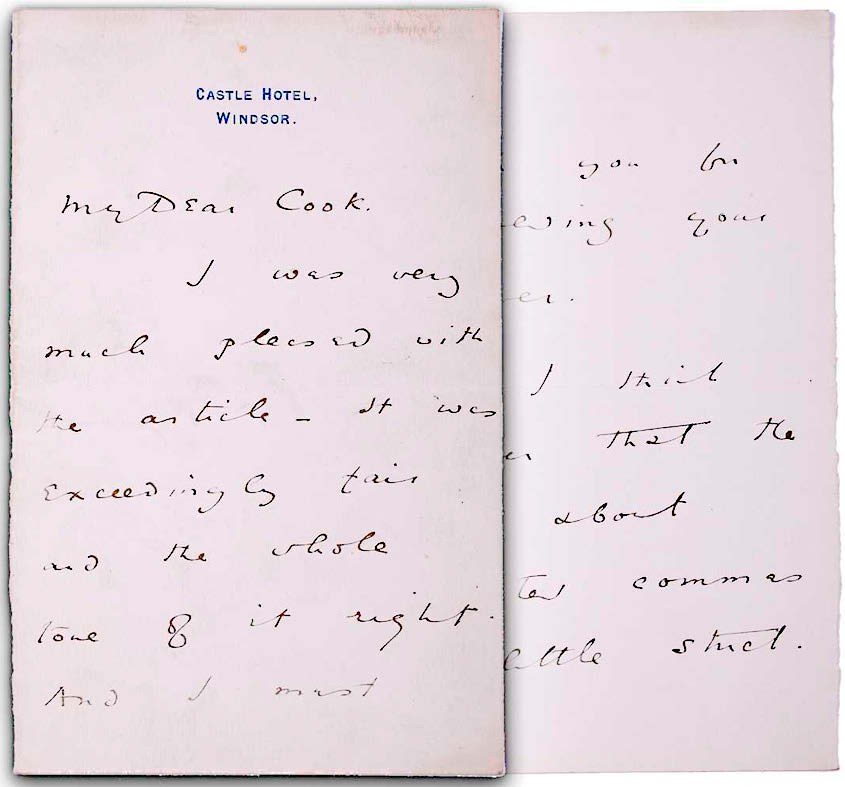 CASTLE HOTEL,
WINDSOR.
My Dear Cook.
I was very
much pleased with
the article – It was
Exceedingly fair
and the whole
tone of it right.
And I must
you for
your
I think
that the
about
commas
little strict.